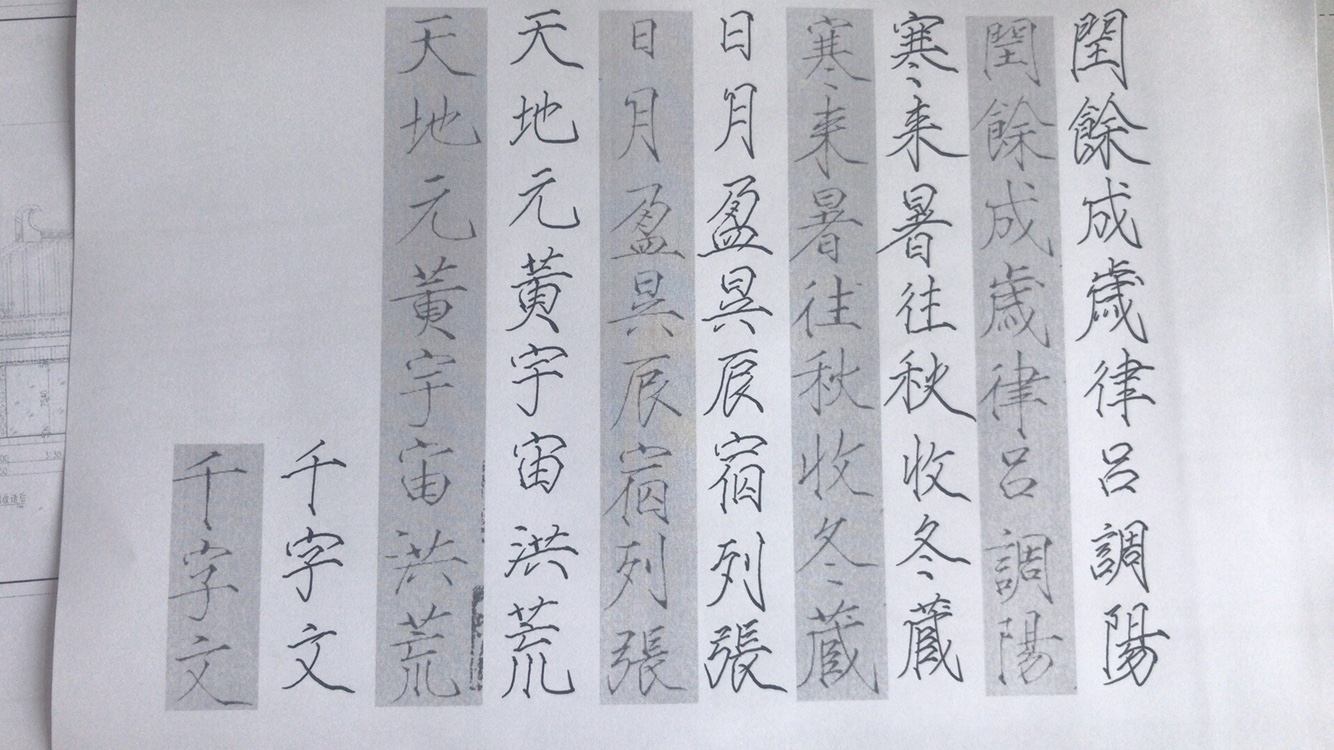 千字文
千字文
天地元黃宇宙洪荒
天地元黃宇宙洪荒
日月盈昃辰宿列張
日月盈昃辰宿列張
寒来暑往秋收冬蔵
寒来暑往秋收冬蔵
閏餘成歳律呂調陽
閏餘成歳律呂調陽